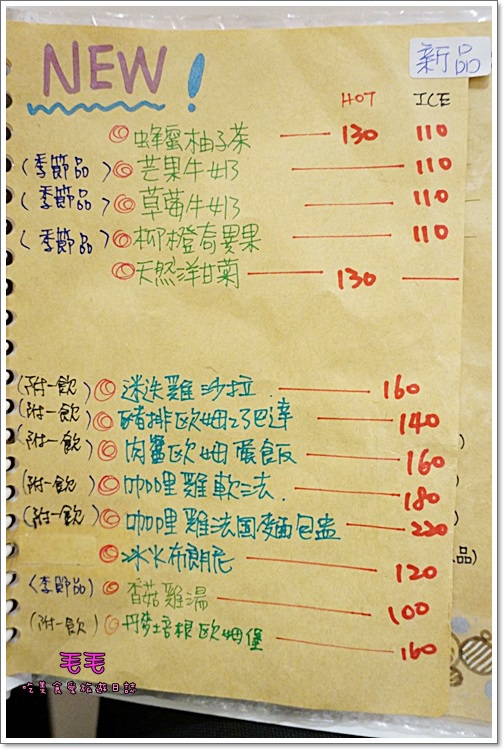 NEW!
新品
HOT ICE
◎ 蜂蜜柚子茶 130 110
(季節品) ◎ 芒果牛奶 110
(季節品) ◎ 草莓牛奶 110
(季節品) ◎ 柳橙奇異果 110
◎ 天然洋甘菊 130
(附一飲) ◎ 迷迭雞沙拉 160
(附一飲) ◎ 豬排歐姆ㄋ巴達 140
(附一飲) ◎ 肉醬歐姆蛋飯 160
(附一飲) ◎ 咖哩雞軟法 180
(附一飲) ◎ 咖哩雞法国麵包盅 220
◎ 冰火布朗尼 120
(季節品) ◎ 香菇雞湯 100
(附一飲) ◎ 丹麥培根歐姆堡 160
品)
毛毛
吃美食愛旅遊日誌